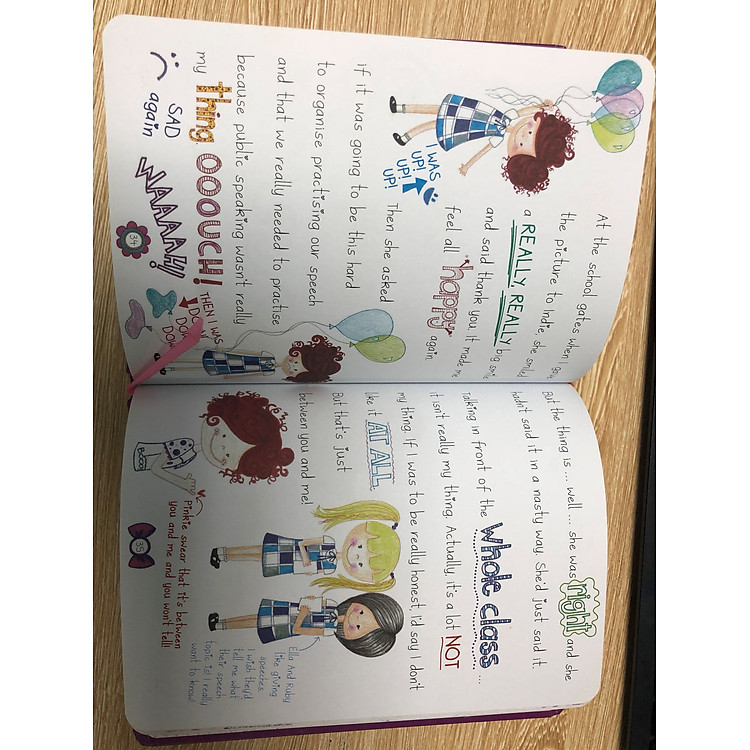 At the school gates when I
the picture to Indie, she smiled
a REALLY, REALLY big smile
and said thank you. It made me
feel all happy again.
I WAS
UP!
UP!
UP!
Then she asked
if it was going to be this hard
to organise practising our speech
and that we really needed to practise
because public speaking wasn't really
my thing. OOOUCH!
THEN I WAS
SAD
again
WAAAAH!
34
But the thing is ... well ... she was right and she
hadn't said it in a nasty way. She'd just said it.
Talking in front of the whole class ...
it isn't really my thing. Actually, it's a lot NOT
my thing. If I was to be really honest, I'd say I don't
like it AT ALL.
But that's just
between you and me!
Ella And Ruby
like giving
speeches.
I wish they'd
tell me what
their speech
topic is! I really
want to know!
pinkie swear that it's between
you and me and you won't tell!
35